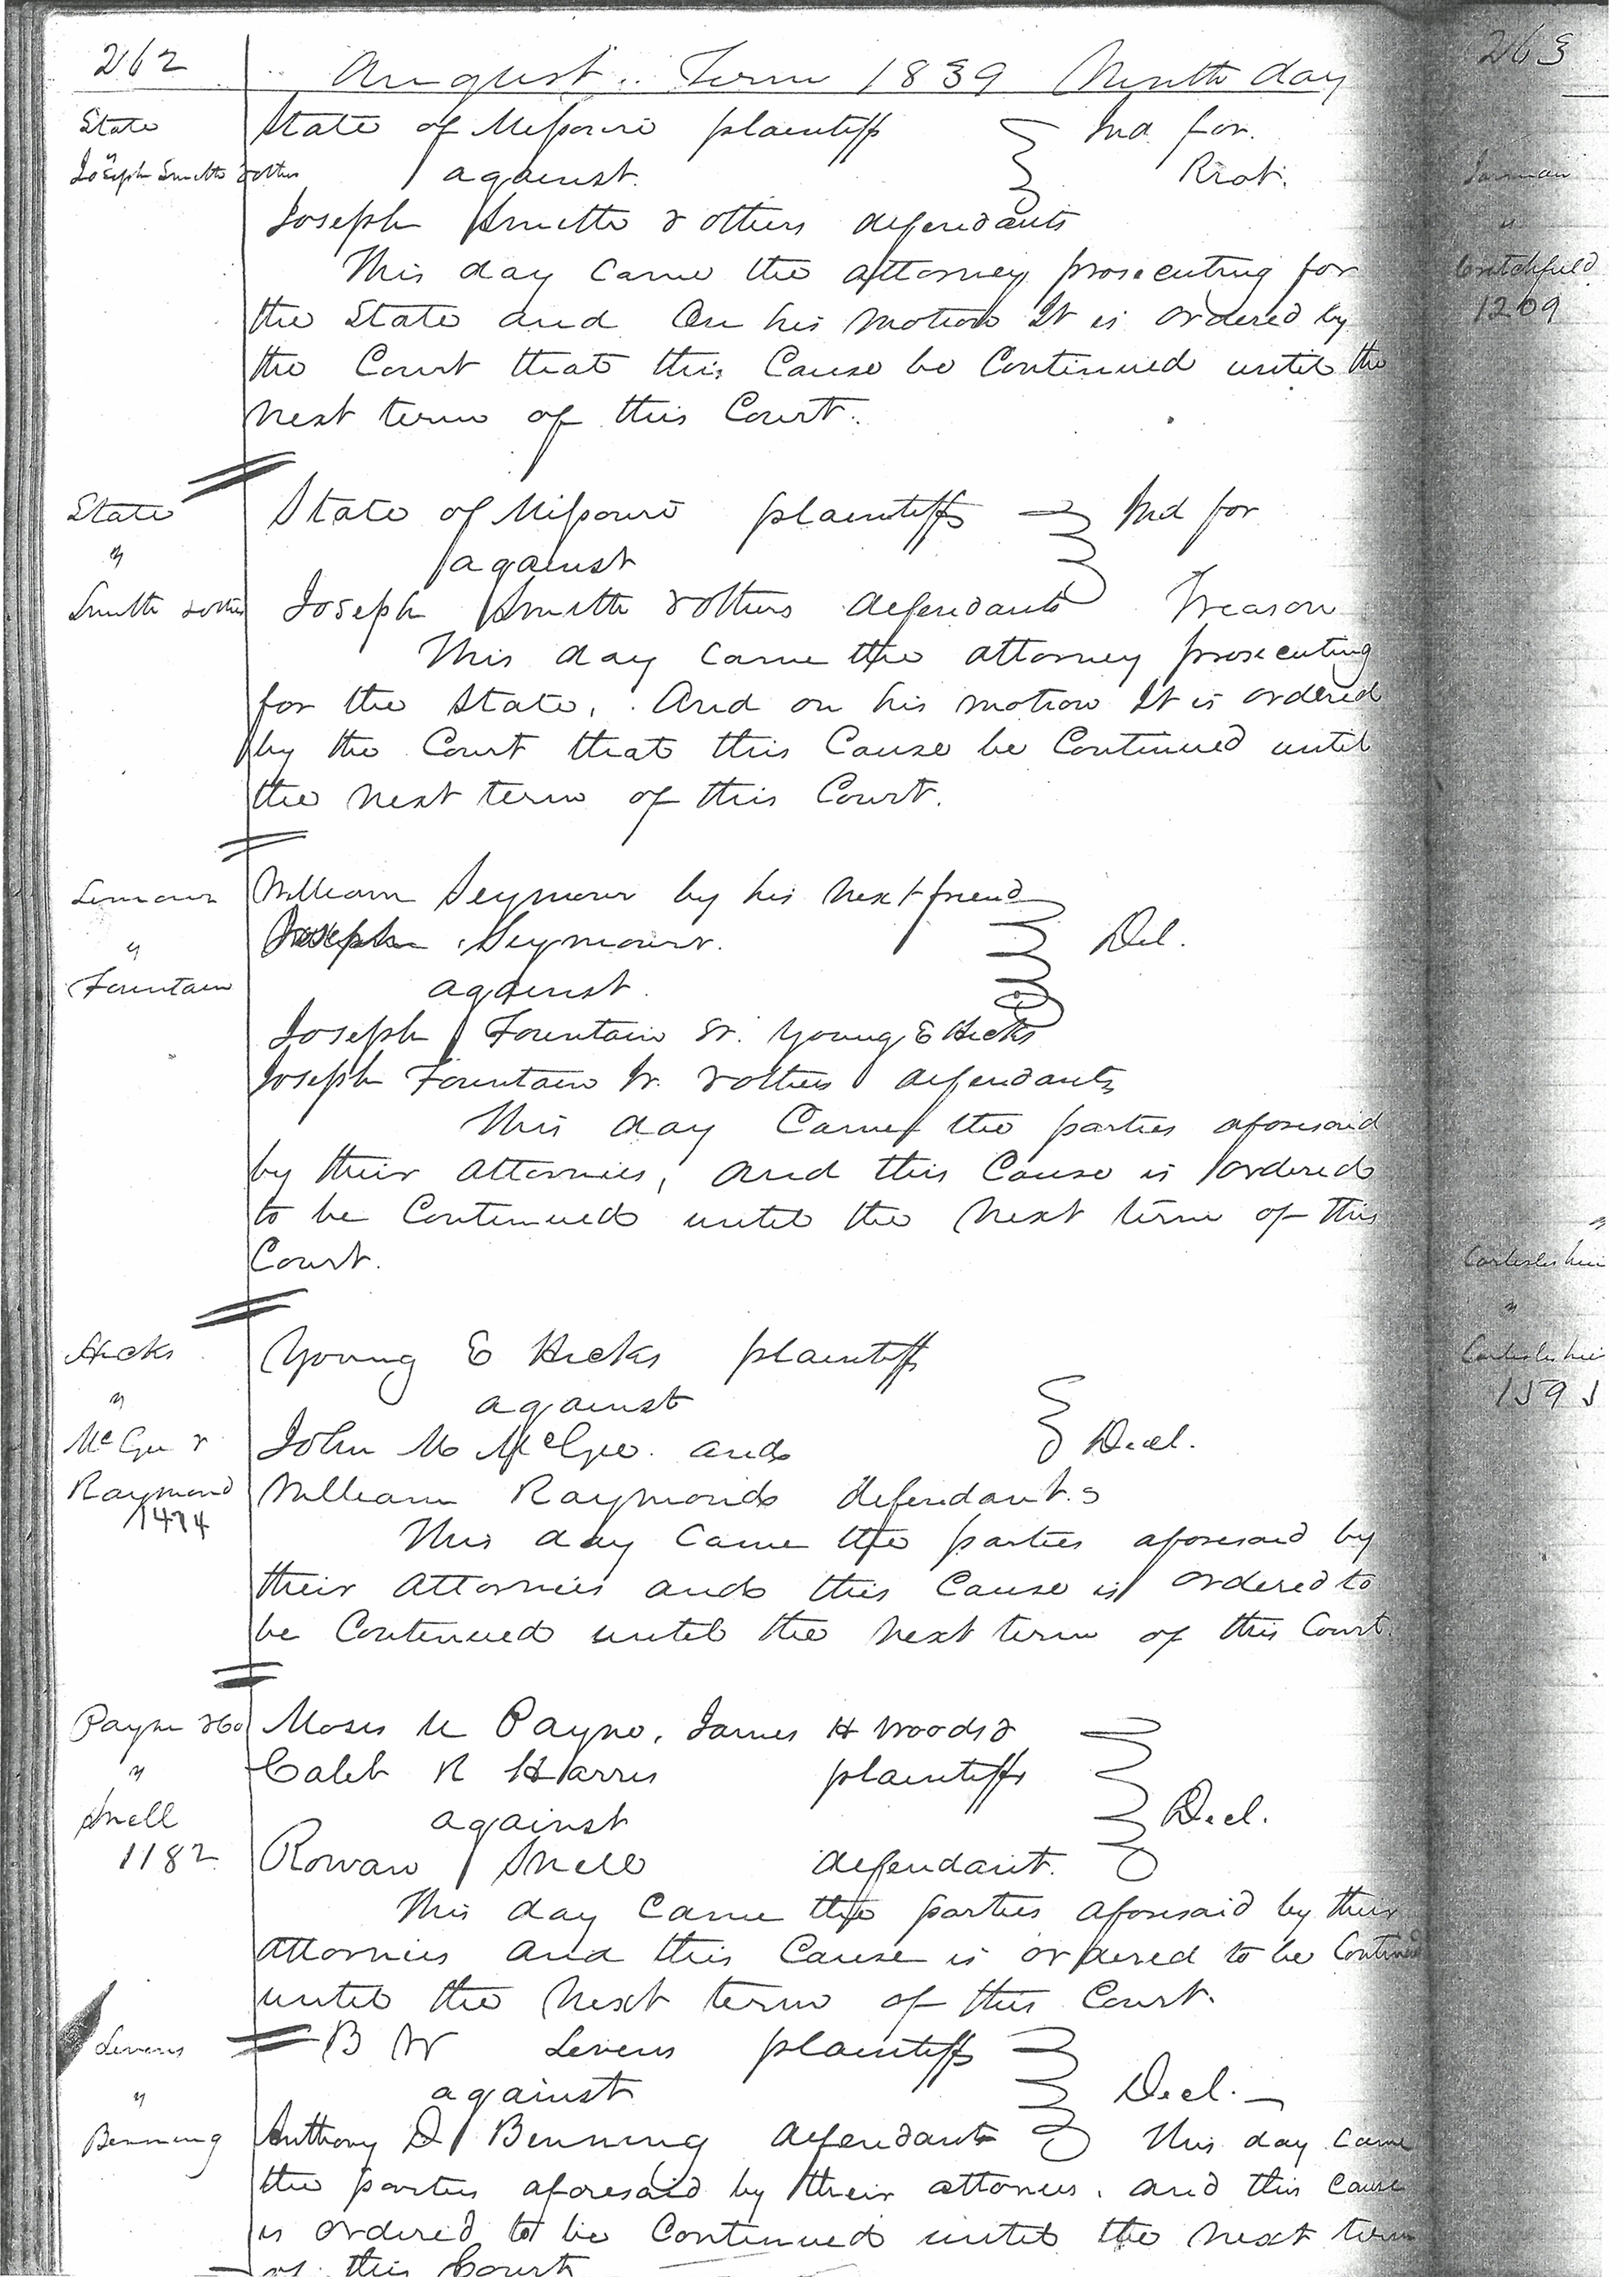 262
August Term 1839 Ninth day
State
"
Joseph Smith & others
State of Missouri plaintiff Ind for
against Riot.
Joseph Smith & others defendants
This day came the attorney prosecuting for
the State and On his motion It is ordered by
the Court that this Cause be Continued until the
next term of this Court.
State
"
Smith & others
State of Missouri plaintiffs Ind for
against
Joseph Smith & others defendants Treason
This day came the attorney prosecuting
for the State, And on his motion It is ordered
by the Court that this Cause be Continued until
the next term of this Court.
"
Fountain
William Seymour by his next friend
Joseph Seymour. Del.
against
Joseph Fountain Sr. Young E Hicks
Joseph Fountain Jr. & others defendants
This day Came the parties aforesaid
by their attornies, and this Cause is ordered
to be Continued until the next term of this
Court.
Hicks
"
McGee &
Raymond
1474
Young E Hicks plaintiff
against
John M McGee and Decl.
William Raymond defendants
This day came the parties aforesaid by
their attornies and this Cause is ordered to
be Continued until the next term of this Court.
Payne & Co
"
Snell
1182
Moses U Payne, James H Woods &
Caleb R Harris plaintiffs
against Decl.
Rowan Snell defendant.
This day Came the parties aforesaid by their
attornies and this Cause is ordered to be Continued
until the next term of this Court.
Levens
"
Benning
B W Levens plaintiff
against Decl. —
Anthony D Benning defendant This day came
the parties aforesaid by their attornies, and this Cause
is ordered to be Continued until the next term
of this Court
263
Jarman
"
Critchfield
1209
"
"